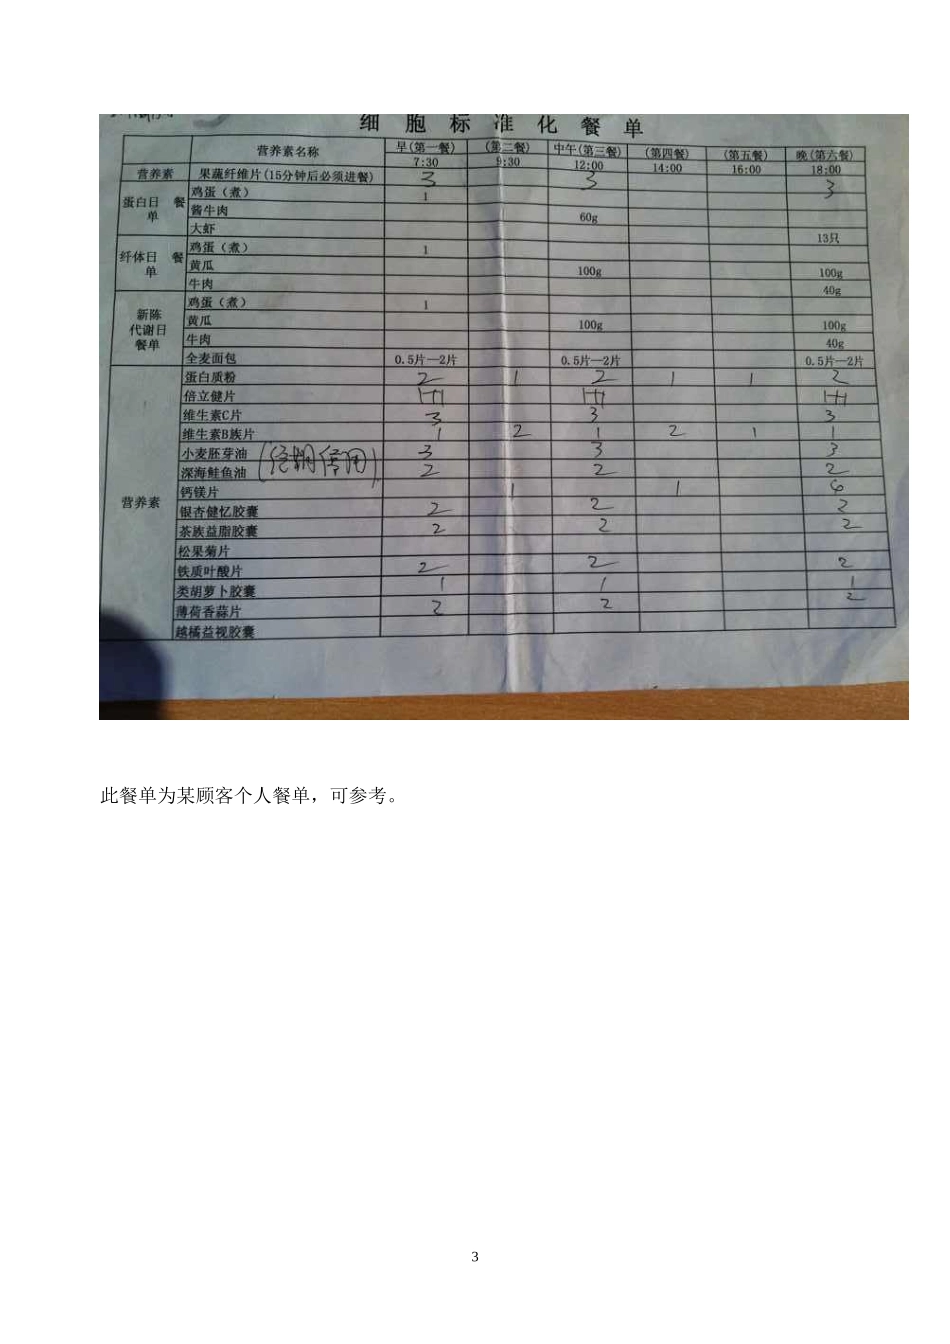 细胞标准化餐单
营养素名称 早(第一餐) (第二餐) 中午(第三餐) (第四餐) (第五餐) 晚(第六餐)
7:30 9:30 12:00 14:00 16:00 18:00
营养素 果蔬纤维片(15分钟后必须进餐) 3 3 3
蛋白日餐单 鸡蛋(煮) 1
酱牛肉 60g
大虾 13只
纤体日餐单 鸡蛋(煮) 1
黄瓜 100g 100g
牛肉 40g
新陈代谢日餐单 鸡蛋(煮) 1
黄瓜 100g 100g
牛肉 40g
全麦面包 0.5片—2片 0.5片—2片 0.5片—2片
营养素 蛋白质粉 2 1 2 1 1 2
倍立健片 1+1+1 1+1+1 1+1+1
维生素C片 3 3 3
维生素B族片 1 2 1 2 1 1
小麦胚芽油 (经期停用) 3 3 3
深海鲑鱼油 2 2 2
钙镁片 1 1 6
银杏健忆胶囊 2 2 2
茶族益脂胶囊 2 2 2
松果菊片
铁质叶酸片 2 2 2
类胡萝卜胶囊 1 1 1
薄荷香蒜片 2 2 2
越橘益视胶囊
此餐单为某顾客个人餐单，可参考。
3